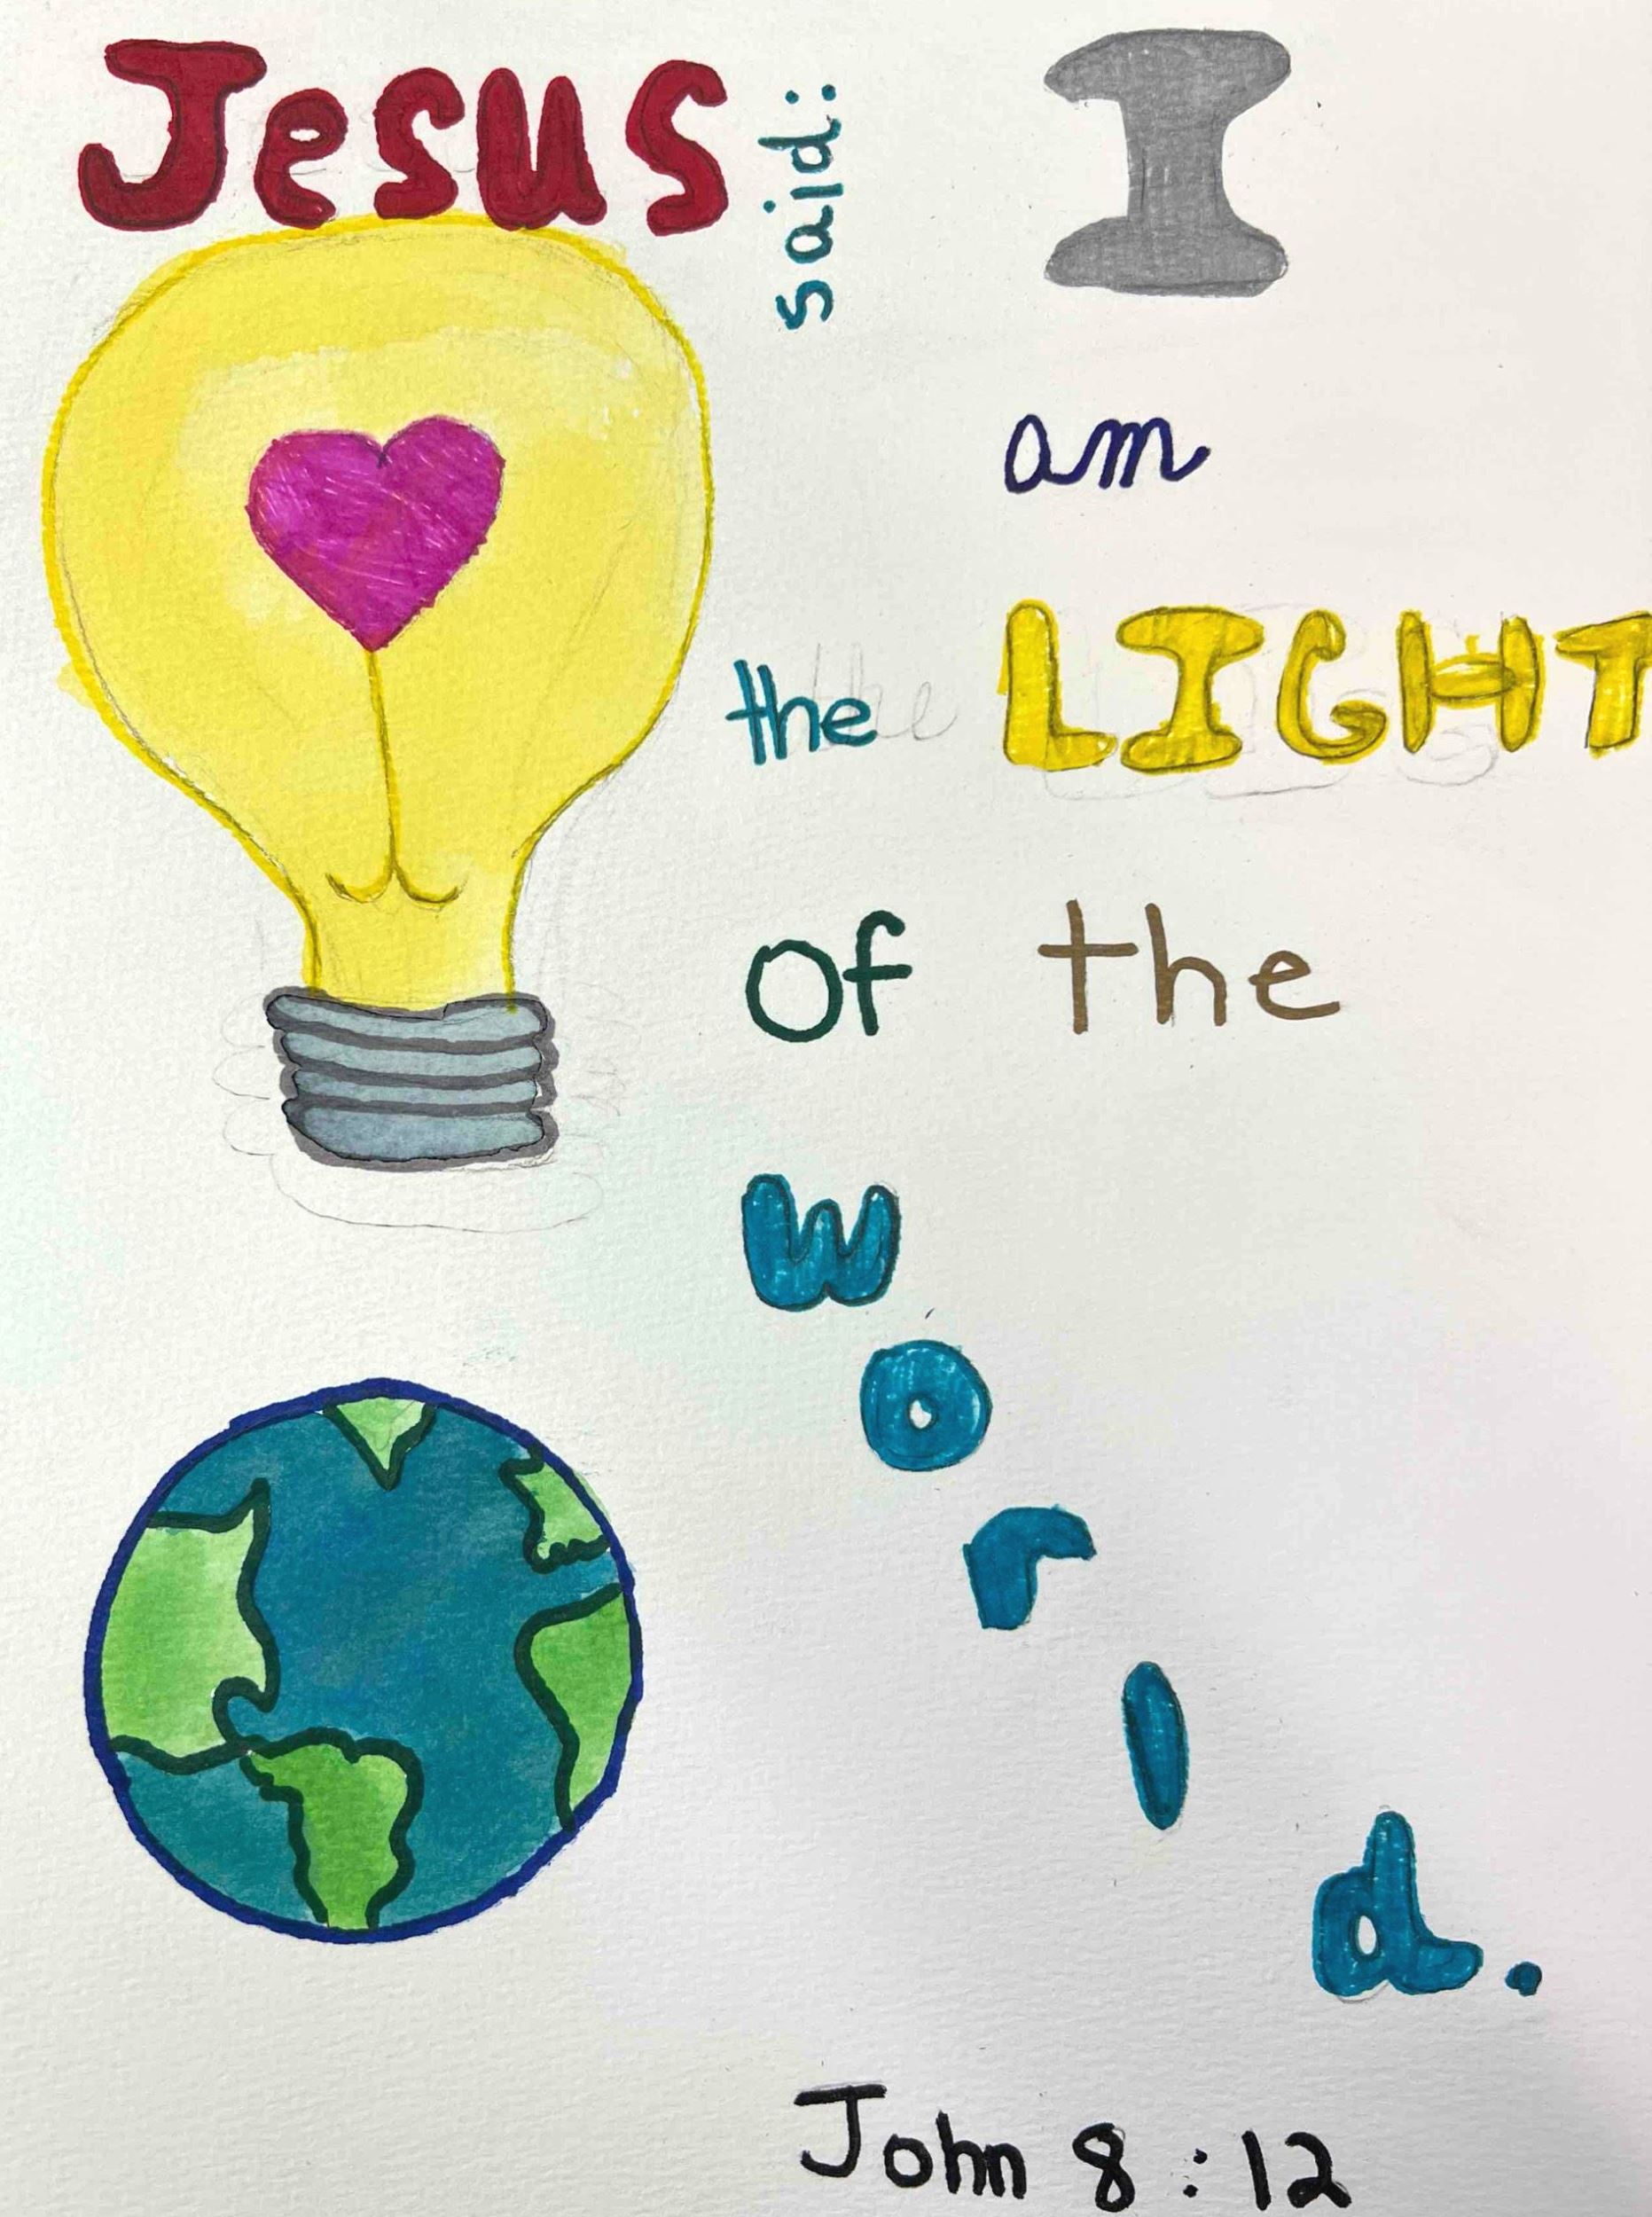 Jesus said: I
am
the LIGHT
Of the
world.
John 8:12